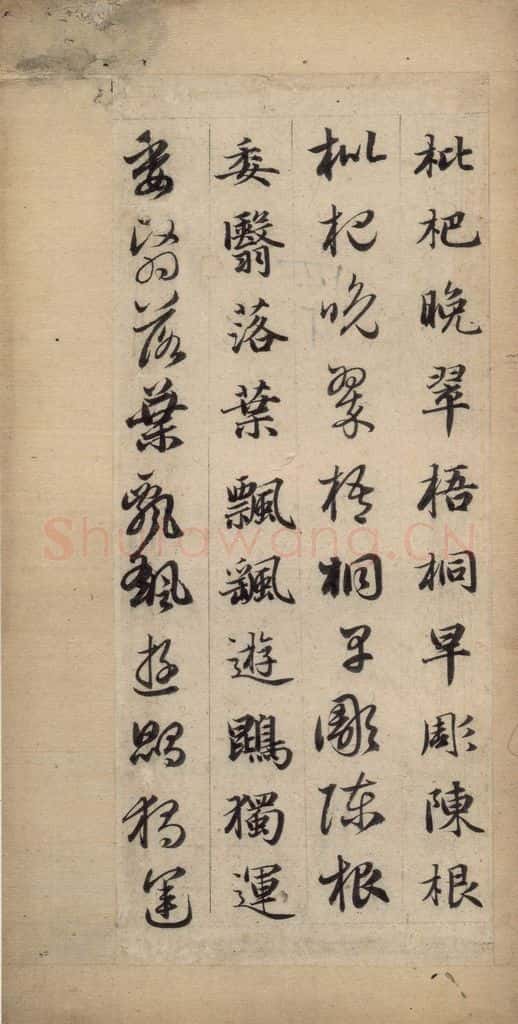 枇杷晚翠梧桐早彫陳根
枇杷晚翠梧桐早彫陳根
委翳落葉飄颻遊鵾獨運
委翳落葉飄颻遊鵾獨運
Shufawang.CN